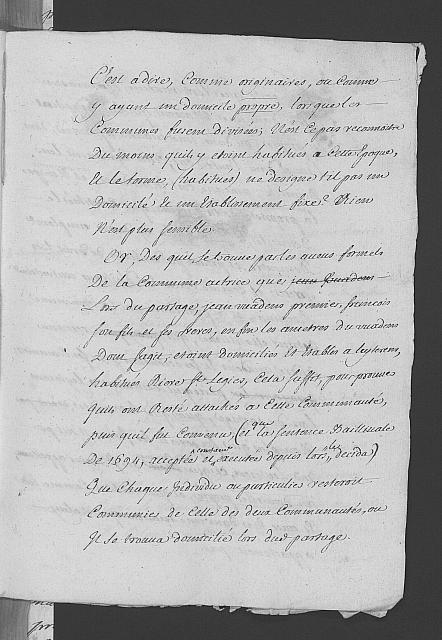 C'est a dire, comme originaires, ou comme
y ayant un domicile propre, lorsque les
Communes fusent divisées; N'est ce pas reconnoitre
Du moins quils y etoint habitués a Cette Epoque,
Et le terme (habitués) ne designe t'il pas un
Domicilié Et un Etablissement fixe? Rien
N'est plus sensible.
Or, Des quil se trouve par les aveus formels
De la Commune autrice que jean
Lors du partage, jean premier, francois
son fils et ses freres, en fin les ancetres du
Dont sagit, etoint domiciliés Et Etablis a
habitués Riere Cela suffit, pour prouver
quils ont Resté attachés a Cette Communauté,
puis quil fut Convenu, (et que la sentence Bailliuale
De 1694, acceptée et executée depuis lors, decida)
Que Chaque Individu ou particulier resteroit
Communier de Celle des deux Communautés, ou
Il se trouva domicilié lors dud partage.